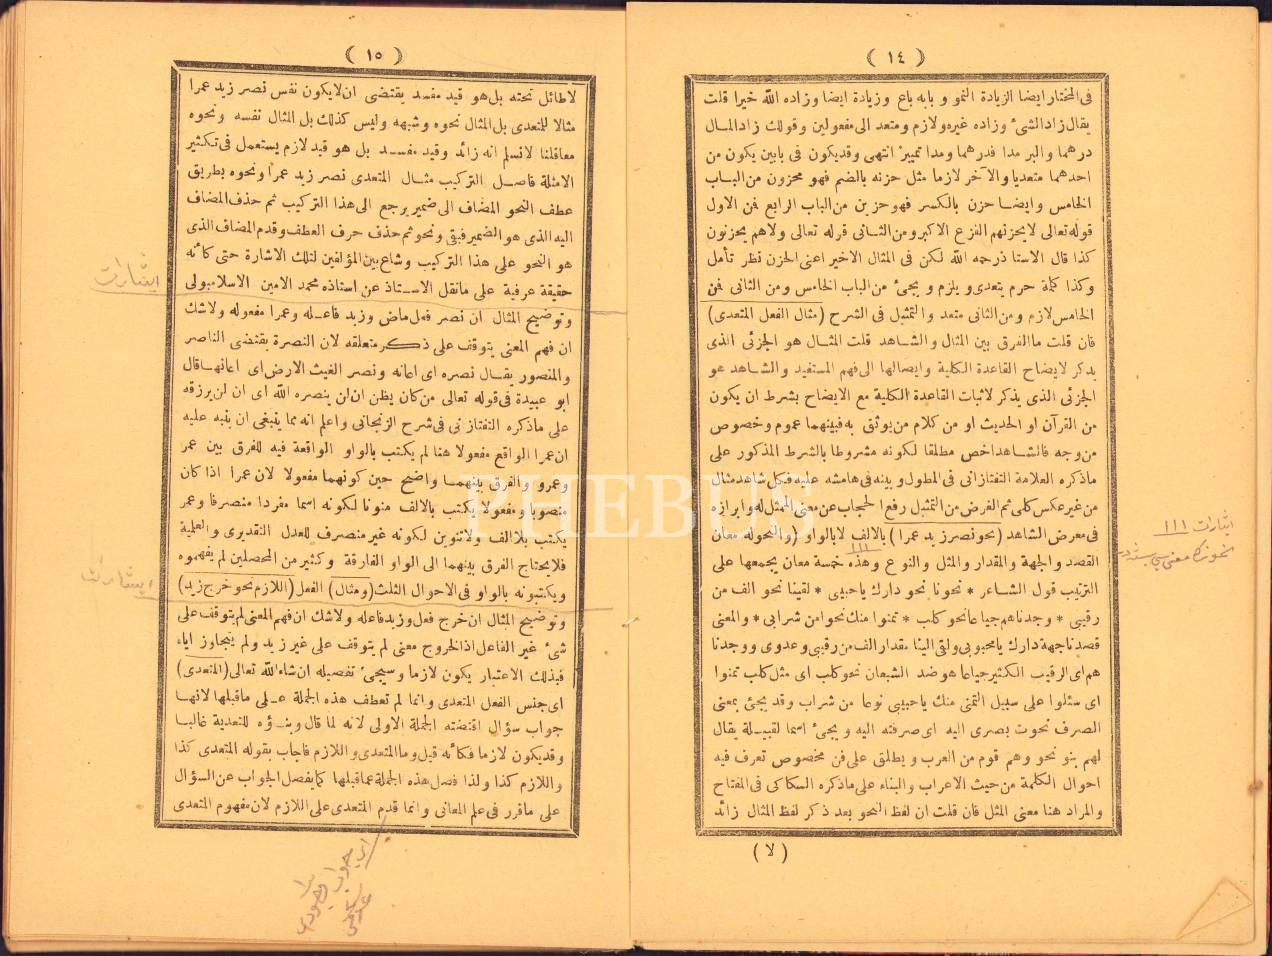 ( ١٤ )
فى المختار ايضا الزيادة النمو و بابه باع وزيادة ايضا وزاده الله خيرا قلت
يقال زاد الشئ وزاده غيره ولازم ومتعد الى مفعولين وقولك زاد المال
درهما والبر مدا فدرهما ومدا تمييز انتهى وقد يكون فى بابين يكون من
احدهما متعديا والآخر لازما مثل حزنه بالضم فهو محزون من الباب
الخامس وايضا حزن بالكسر فهو حزين من الباب الرابع فن الاول
قوله تعالى لا يحزنهم الفزع الاكبر ومن الثانى قوله تعالى ولاهم يحزنون
كذا قال الاستاذ رحمه الله لكن فى المثال الاخير اعنى الحزن نظر تأمل
وكذا كلمة حرم يتعدى ويلزم و يجئ من الباب الخامس ومن الثانى فن
الخامس لازم ومن الثانى متعد والتمثيل فى الشرح (مثال الفعل المتعدى)
فان قلت ما الفرق بين المثال والشاهد قلت المثال هو الجزئى الذى
يذكر لايضاح القاعدة الكلية وايصالها الى فهم المستفيد والشاهد هو
الجزئى الذى يذكر لاثبات القاعدة الكلية مع الايضاح بشرط ان يكون
من القرآن او الحديث او من كلام من يوثق به فبينهما عموم وخصوص
من وجه فالشاهد اخص مطلقا لكونه مشروطا بالشرط المذكور على
ماذكره العلامة التفتازانى فى المطول وبينه فى هامشه عليه فكل شاهد مثال
من غير عكس كلى ثم الغرض من التمثيل رفع الحجاب عن معنى الممثل له وابرازه
فى معرض الشاهد (نحو نصر زيد عمرا) بالالف لا بالواو (والنحو له معان
القصد والجهة والمقدار والمثل والنوع وهذه خمسة معان يجمعها على
الترتيب قول الشاعر * نحونا نحو دارك ياحبيبى * لقينا نحو الف من
رقيبى * وجدناهم جياعا نحو كلب * تمنوا منك نحوا من شرابى * والمعنى
قصدنا جهة دارك يا محبوبى ولقى الينا مقدار الف من رقيبى وعدوى ووجدنا
هم اى الرقيب الكثير جياعا هو ضد الشبعان نحو كلب اى مثل كلب تمنوا
اى سئلوا على سبيل التمنى منك ياحبيبى نوعا من شراب وقد يجئ بمعنى
الصرف نحوت بصرى اليه اى صرفته اليه و يجئ اسما لقبيلة يقال
لهم بنو نحو وهم قوم من العرب و يطلق على فن مخصوص تعرف فيه
احوال الكلمة من حيث الاعراب والبناء على ماذكره السكاكى فى المفتاح
والمراد هنا معنى المثل فان قلت ان لفظ النحو بعد ذكر لفظ المثال زائد
( لا )
اشارات ١١١
( ١٥ )
لاطائل تحته بل هو قيد مفسد يقتضى ان لا يكون نفس نصر زيد عمرا
مثالا للمتعدى بل المثال نحوه وشبهه وليس كذلك بل المثال نفسه ونحوه
معا قلنا لا نسلم انه زائد وقيد مفسد بل هو قيد لازم يستعمل فى تكثير
الامثلة فاصل التركيب مثال المتعدى نصر زيد عمرا ونحوه بطريق
عطف النحو المضاف الى ضمير يرجع الى هذا التركيب ثم حذف المضاف
اليه الذى هو الضمير فبقى ونحو ثم حذف حرف العطف وقدم المضاف الذى
هو النحو على هذا التركيب وشاع بين المؤلفين لتلك الاشارة حتى كأنه
حقيقة عرفية على مانقل الاستاذ عن استاذه محمد الامين الاسلامبولى
وتوضيح المثال ان نصر فعل ماض وزيد فاعله وعمرا مفعوله ولاشك
ان فهم المعنى يتوقف على ذكر متعلقه لان النصرة يقتضى الناصر
والمنصور يقال نصره اى اعانه ونصر الغيث الارض اى اعانها قال
ابو عبيدة فى قوله تعالى من كان يظن ان لن ينصره الله اى ان لن يرزقه
على ماذكره التفتازانى فى شرح الزنجانى واعلم انه مما ينبغى ان ينبه عليه
ان عمرا الواقع مفعولا هنا لم يكتب بالواو الواقعة فيه للفرق بين عمر
وعمرو والفرق بينهما واضح حين كونهما مفعولا لان عمرا اذا كان
منصوبا ومفعولا يكتب بالالف منونا لكونه اسما مفردا منصرفا وعمر
يكتب بلا الف ولا تنوين لكونه غير منصرف للعدل التقديرى والعلمية
فلا يحتاج الفرق بينهما الى الواو الفارقة وكثير من المحصلين لم يفهموه
ويكتبونه بالواو فى الاحوال الثلث (ومثال) الفعل (اللازم نحو خرج زيد)
وتوضيح المثال ان خرج فعل وزيد فاعله ولاشك ان فهم المعنى لم يتوقف على
شئ غير الفاعل اذ الخروج معنى لم يتوقف على غير زيد ولم يتجاوز اياه
فبذلك الاعتبار يكون لازما وسيجئ تفصيله ان شاء الله تعالى (المتعدى)
اى جنس الفعل المتعدى وانما لم تعطف هذه الجملة على ماقبلها لانها
جواب سؤال اقتضته الجملة الاولى لانه لما قال وبناؤه للتعدية غالبا
وقد يكون لازما فكأنه قيل وما المتعدى واللازم فاجاب بقوله المتعدى كذا
واللازم كذا ولذا فصل هذه الجملة عما قبلها كما يفصل الجواب عن السؤال
على ماقرر فى علم المعانى وانما قدم المتعدى على اللازم لان مفهوم المتعدى
اشارات
PHEBUS